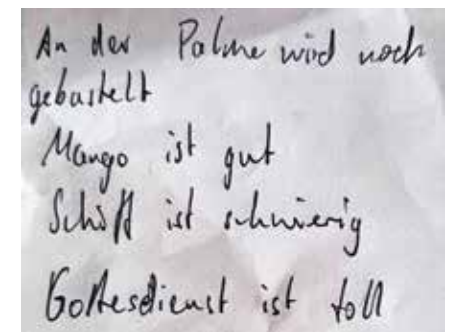 An der Palme wird noch
gebastelt
Mango ist gut
Schiff ist schwierig
Gottesdienst ist toll